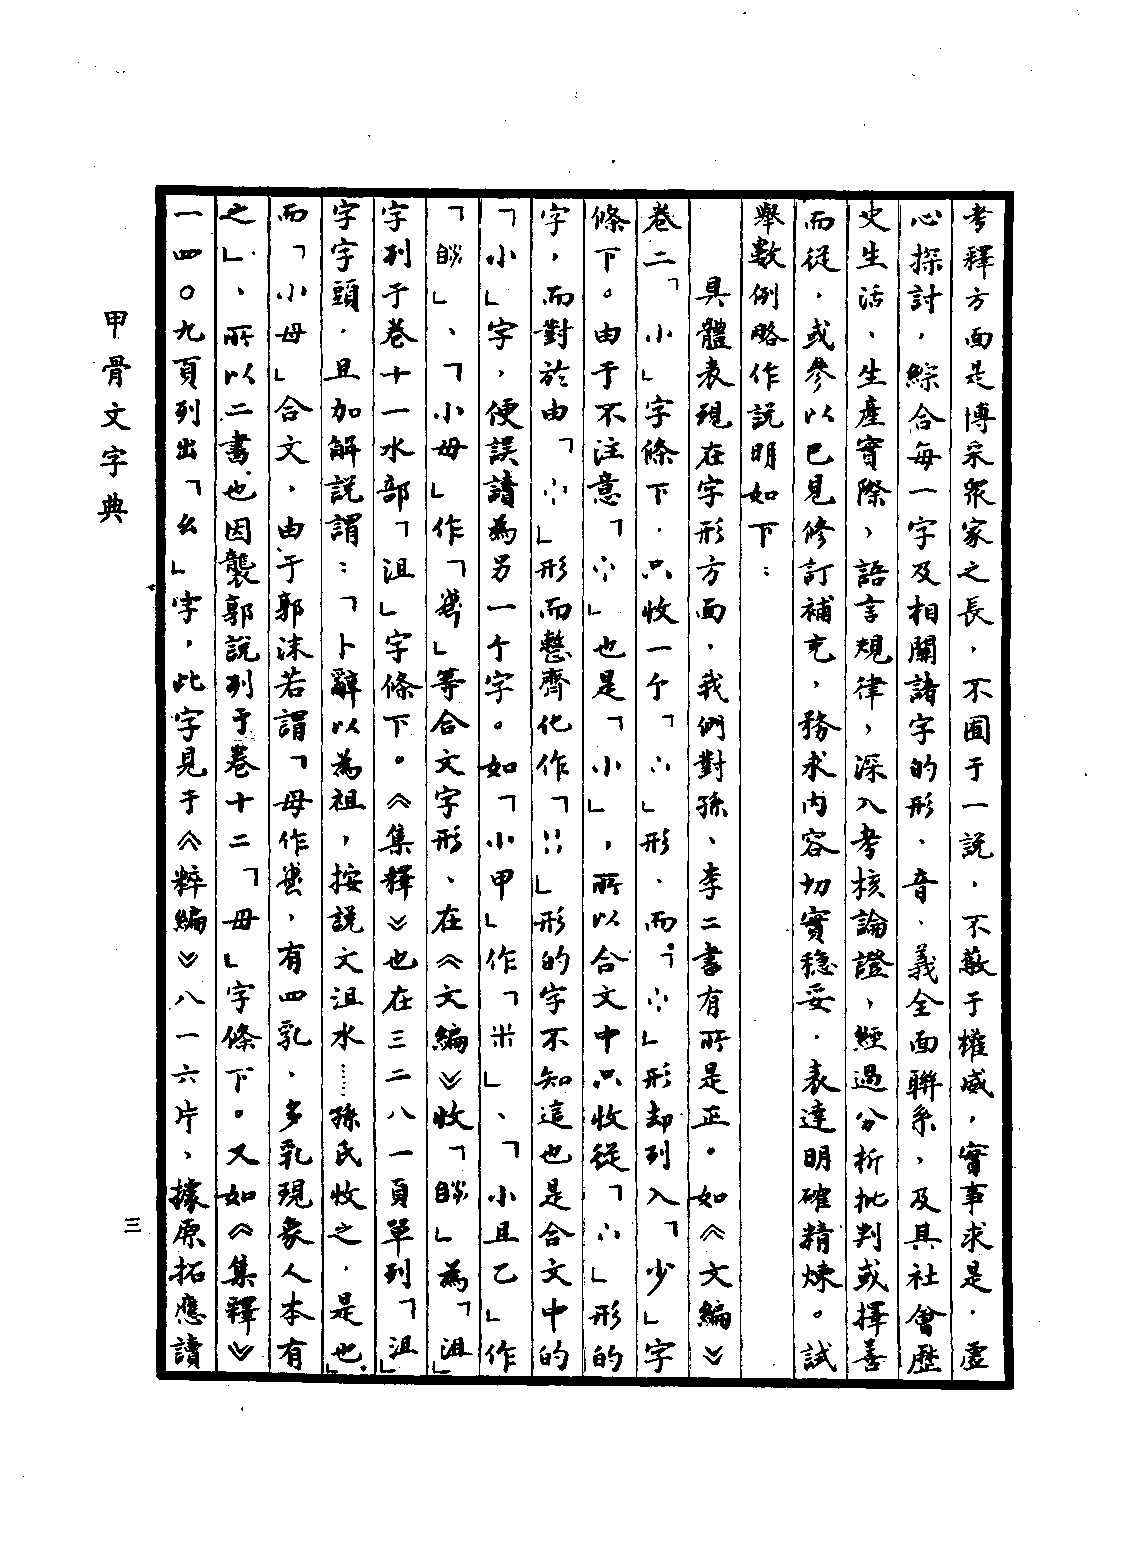 考釋方面是博采眾家之長，不囿于一説，不蔽于權威，實事求是，虛
心探討，綜合每一字及相關諸字的形、音、義全面聯系，及其社會歷
史生活、生產實際，語言規律，深入考核論證，經過分析批判或擇善
而從，或參以已見修訂補充，務求內容切實穩妥，表達明確精煉。試
舉數例略作説明如下：
具體表現在字形方面，我們對孫、李二書有所是正。如《文編》
卷二「小」字條下，只收一个「」形，而「」形却列入「少」字
條下。由于不注意「」也是「小」，所以合文中只收從「」形的
字，而對於由「」形而整齊化作「」形的字不知這也是合文中的
「小」字，便誤讀為另一个字。如「小甲」作「」、「小且乙」作
「」、「小母」作「」等合文字形、在《文編》收「」為「沮」
字列于卷十一水部「沮」字條下。《集釋》也在三二八一頁單列「沮」
字字頭，且加解説謂：「卜辭以為祖，按説文沮水……孫氏收之，是也」
而「小母」合文，由于郭沫若謂「母作，有四乳，多乳現象人本有
之」，所以二書也因襲郭説列于卷十二「母」字條下。又如《集釋》
一四〇九頁列出「幺」字，此字見于《粹編》八一六片，據原拓應讀
甲骨文字典
三